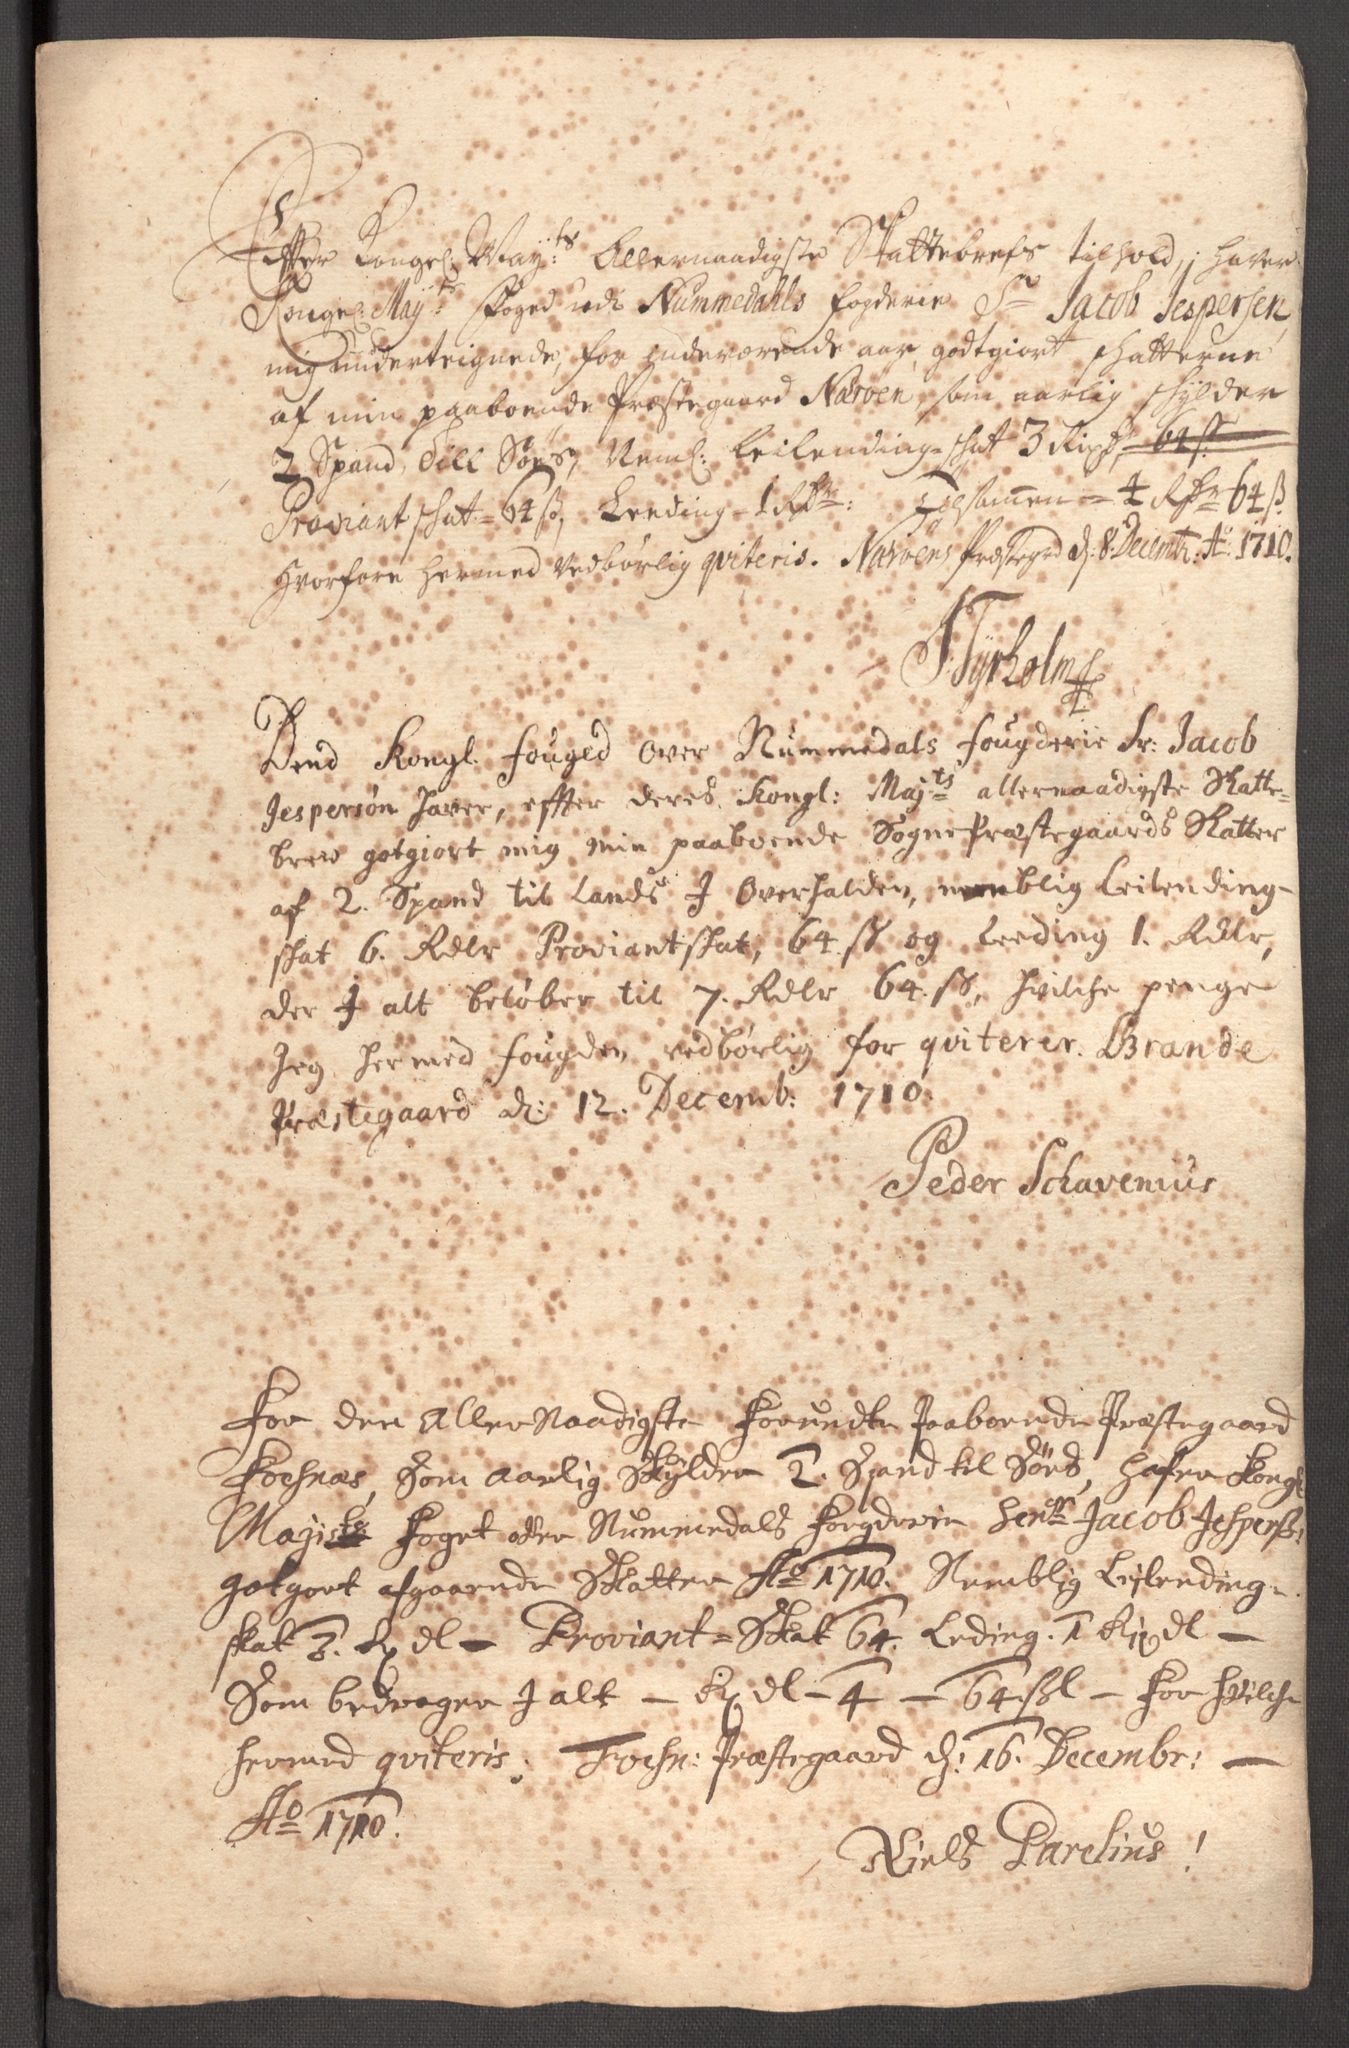 Effter Kongel: May:ts Allernaadigste Skattebrefs tilhold, haver
Kongel: May:ts Foged udi Nummedahls fogderie Sr Jacob Jespersen,
mig underteignede, for indeværende aar, godtgiort skatterne
af min paaboende Præstegaard Næroen, som aarlig skylder
2 Spand, Neml: Leilending-skat 3 Rixd,
Proviant skat = 64 ß, Leeding - 1 Rdr: Tilsammen = 4 Rdr 64 ß.
Hvorfore hermed vedbørlig qviteris. Nærøens Præstegrd d: 8 Decembr: Ao: 1710.
Tyrholm
Dend Kongl. fouged over Nummedals fougderie Sr: Jacob
Jespersøn haver, effter deres Kongl: Maj:ts allernaadigste Skatte-
brew gotgiort mig min paaboende SognePræstegaards Skatter
af 2. Spand til Lands J Overhalden, nemblig Leilending-
skat 6. Rdlr Proviantskat, 64. ß og Leeding 1. Rdlr,
der J alt beløber til 7. Rdlr 64. ß, hvilche penge
Jeg hermed fougden vedbørlig for qviterer. Brande
Præstegaard d: 12. Decemb: 1710.
Peder Schavenius
For den Aller Naadigste Forundte Paaboende Præstegaard
Fochnæs, Som Aarlig Skylder 2. Spand til Söes, hafer Kongl
Majsts Foget offver Nummedals Fougderie Herr Jacob Jesperß:
gotgort afgaaende Skatter Ao 1710. Nemblig Leilending-
skat 3. Rx dl - Proviant = Skat 64. Leding. 1 Rixdl -
Som bedrager J alt - Rx dl - 4 - 64. ßl - For hvilche
hermed qviteris. Fochn: Præstegaard d: 16. Decembr: -
Ao 1710.
Niels Parelius!